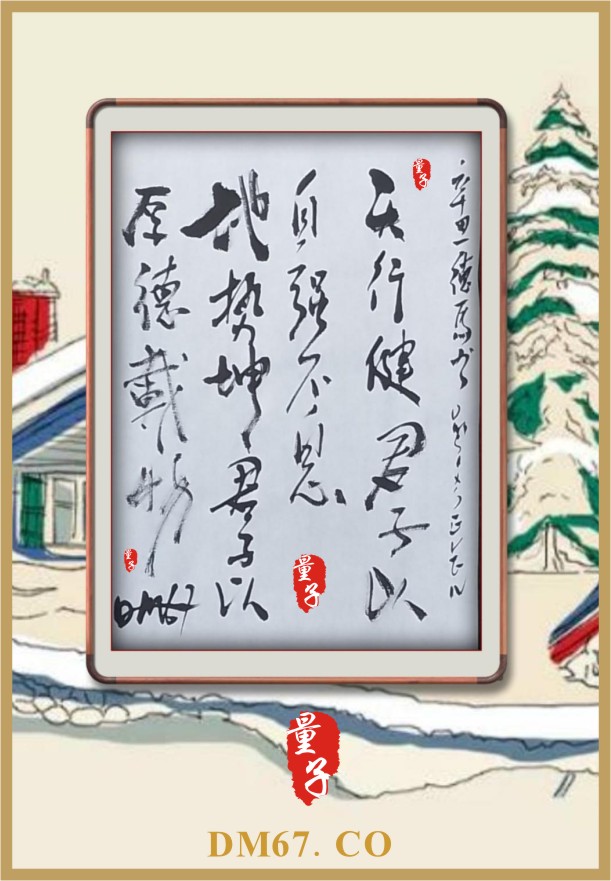 量子
天行健君子以
自强不息
量子
地势坤君子以
厚德載物
量子
DM67
量子
DM67. CO